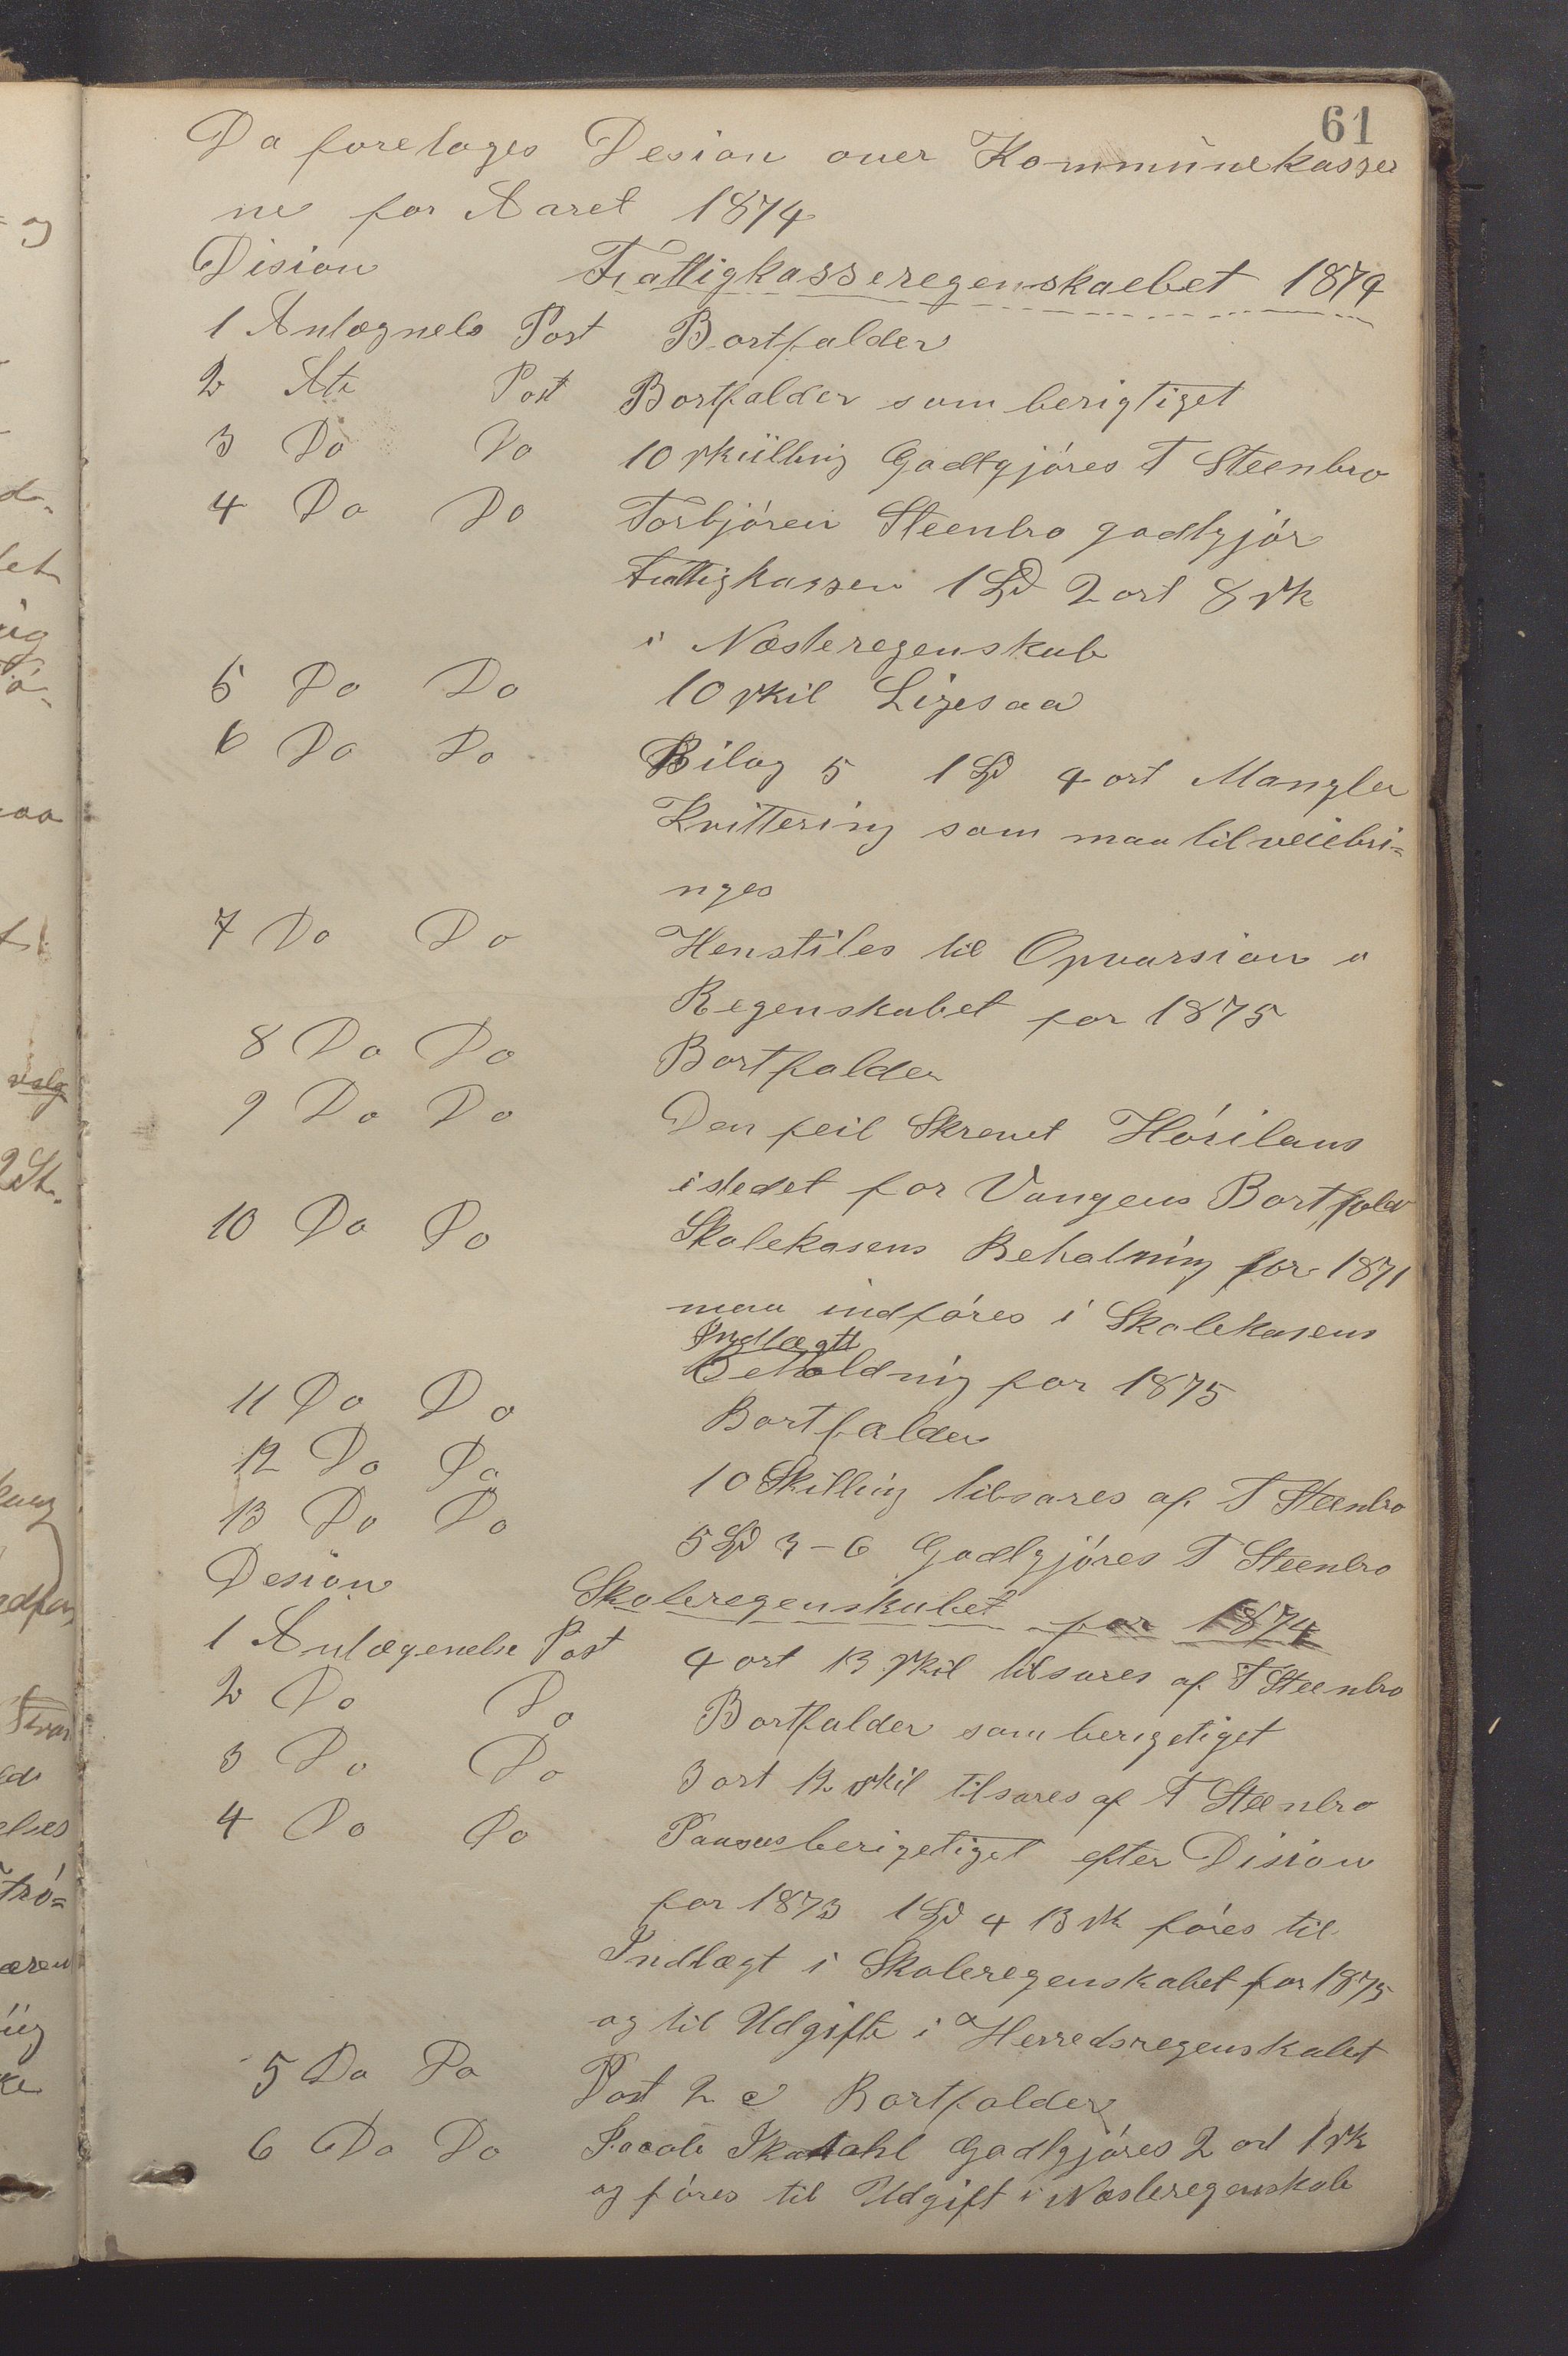 61
Da foretages Desion over Kommunekasser
ne for Aaret 1874
Dision Fattigkasseregenskaebet 1874
1 Antegnels Post Bortfalder
2 Ate Post Bortfalder som berigtiget
3 Do Do 10 skilling Godtgjóres T Steenbro
4 Do Do Torbjóren Steenbro godtgjór
Fattigkassen 1 Spd 2 ort 8 sk
i Næsteregenskab
5 Do Do 10 skil Ligesaa
6 Do Do Bilag 5 1 Spd 4 ort Mangler
Kvittering som maa tilveiebri-
nges
7 Do Do Henstiles til Opvarsion a
Regenskabet for 1875
8 Do Do Bortfalder
9 Do Do Den feil Skrevet Hórilans
istedet for Vangens Bortfald
10 Do Do Skolekasens Behalning for 1871
maa indfóres i Skolekasens
Indlægtt
Beholdning for 1875
11 Do Do Bortfalder
12 Do Do 10 Skilling tilsvares af T Steenbro
13 Do Do 5 Spd 3-6 Godtgjóres T Steenbro
Desion Skoleregenskabet for 1874
1 Antægenelse Post 4 ort 13 skil tilsvares af T Steenbro
2 Do Do Bortfalder som berigetiget
3 Do Do 3 ort 12 skil tilsares af T Steenbro
4 Do Do berigetiget efter Dision
for 1873 1 Spd 4 13 sk fóres til
Indlægt i Skoleregenskabet for 1875
og til Udgifte i Herredsregenskabet
5 Do Do Post 2 c Bortfalder
6 Do Do Jacob Skadahl Godtgjóres 2 ort 1 sk
og fóres til Udgift i Næsteregenskab